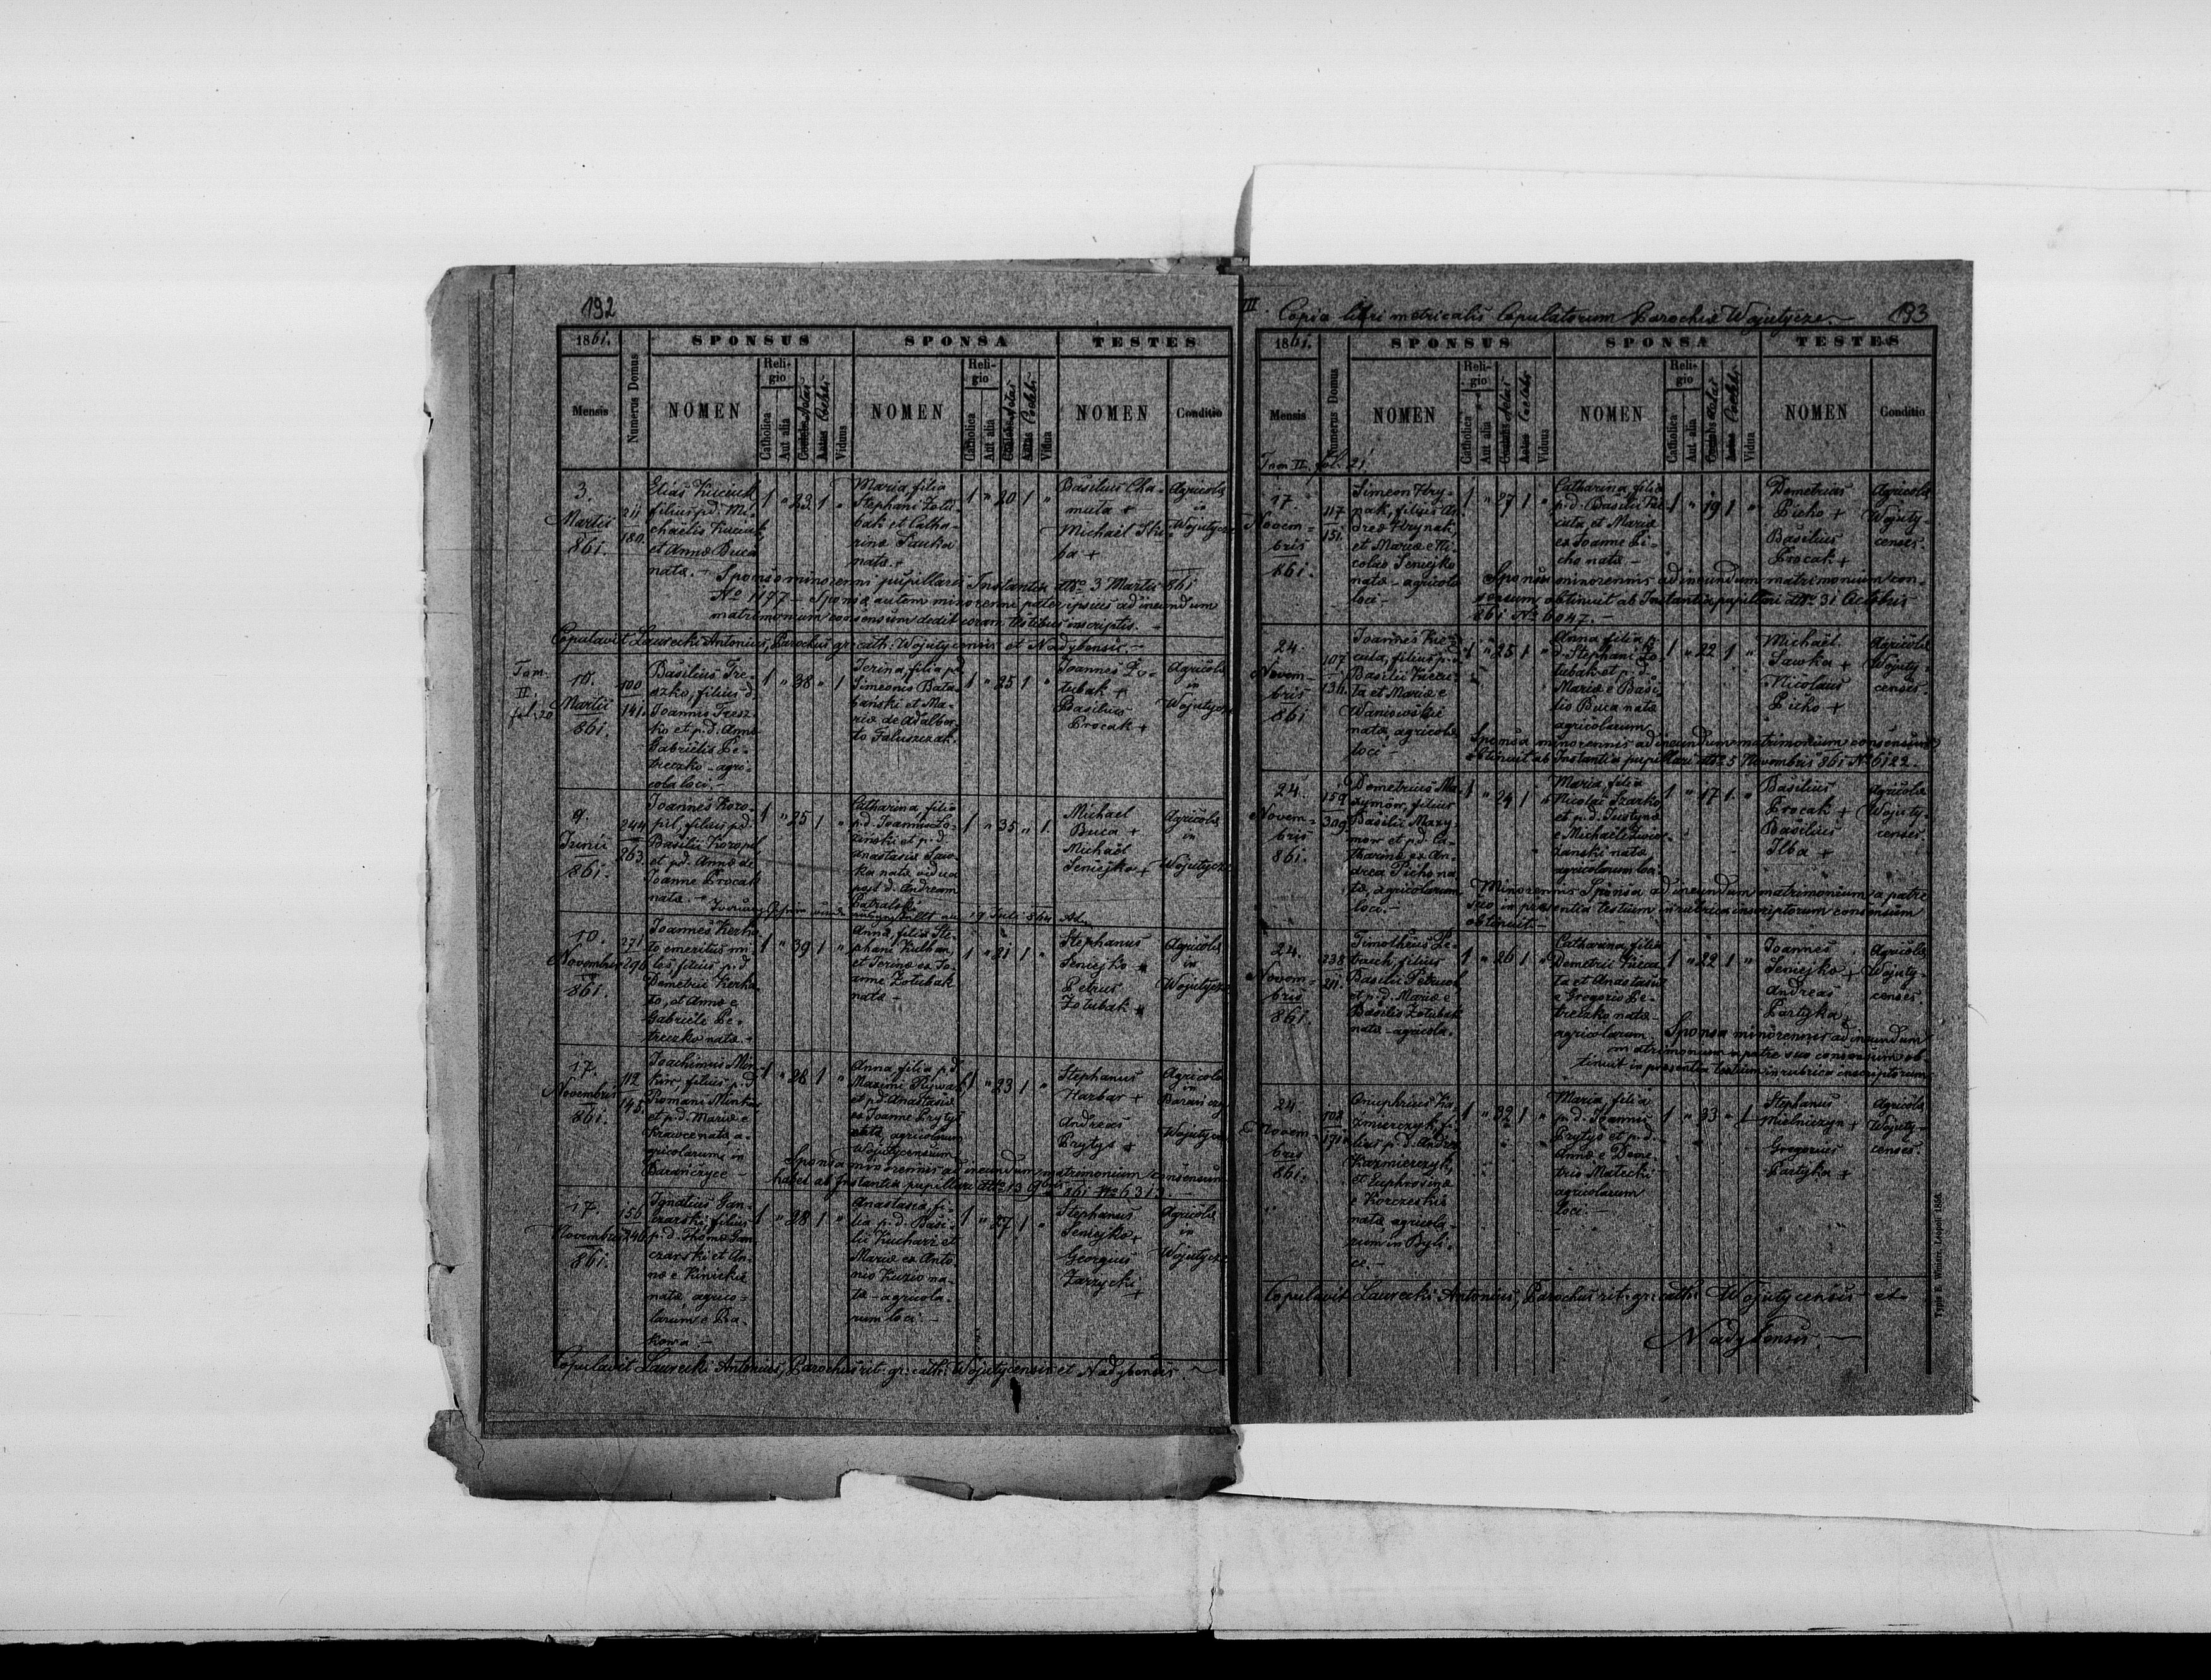 192
1861.
Numerus Domus
SPONSUS
SPONSA
TESTES
Mensis
NOMEN
Reli-
gio
Catholica
Aut alia
Aetas
Coelebs
Viduus
NOMEN
Reli-
gio
Catholica
Aut alia
Aetas
Coelebs
Vidua
NOMEN
Conditio
3.
Martii
861.
211
180.
Elias Kuciuk
filius p.d. Mi-
chaelis Kuciuk
et Anna Buca
nata. -
1 " 23 1 "
Maria, filia
Stephani Zotu-
bak et Catha-
rina Sawka
nata. -
1 " 20 1 "
Basilius Cha-
mula +
Michael Ilu-
ba +
Agricola
in
Wojutycze
Sponso minorenni pupillaris Instantia dtto 3 Martii 861
No 1177 - Sponsa autem minorenni pater ipsius ad ineundum
matrimonium consensum dedit coram testibus inscriptis. -
Copulavit Laurecki Antonius, Parochus gr. cath. Wojutycensis et Nadybensis. -
Tom.
II.
fol. 20
10.
Martii
861.
100
141.
Basilius Tre-
szko, filius d.
Joannis Tresz-
ko et p.d. Anna
Gabrielis Pe-
treczko - agri-
cola loci. -
1 " 38 " 1
Terina, filia p.d.
Simeonis Bata-
bański et Ma-
ria de Adalber-
to Faluszczak.
1 " 25 1 "
Joannes Zo-
tubak +
Basilius
Procak +
Agricola
in
Wojutycze
9.
Junii
861.
244
263.
Joannes Koro-
pil, filius p.d.
Basilii Koropil
et p.d. Anna de
Joanne Procak
nata. -
1 " 25 1 "
Catharina, filia
p.d. Joannis Lo-
ziński et p.d.
Anastasia Saw-
ka nata vidua
post d. Andream
Batralski
1 " 35 " 1.
Michael
Buca +
Michael
Seniejko +
Agricola
in
Wojutycze
10.
Novembris
861.
271
296
Joannes Kerha-
to emeritus mi-
les filius p.d.
Demetrii Kerha-
to, et Anna e
Gabriele Pe-
treczko nata. -
1 " 39 1 "
Anna, filia Ste-
phani Kulban
et Terina ex Jo-
anne Zotubak
nata -
1 " 21 1 "
Stephanus
Seniejko +
Petrus
Zotubak +
Agricola
in
Wojutycze
17.
Novembris
861.
112
145.
Joachimus Min-
kur, filius p.d.
Romani Minkur
et p.d. Maria e
Krawce nata a-
gricolarum in
Barańczyce -
1 " 28 1 "
Anna, filia p.d.
Maximi Rypiach
et p.d. Anastasia
ex Joanne Prytys
nata, agricolarum
Wojutycensium
1 " 23 1 "
Stephanus
Harbar +
Andreas
Prytys +
Agricola
in
Barańczyce
Wojutycze
Sponsa minorennis ad ineundum matrimonium consensum
habet ab Instantia pupillari dtto 13 9bris 861 No 6313
17.
Novembris
861.
156
246
Ignatius Gan-
czarski, filius
p.d. Thoma Gan-
czarski et An-
na e Kinickie
nata, agrico-
larum e Ra-
kowa -
1 " 28 1 "
Anastasia, fi-
lia p.d. Basi-
lii Kucharz et
Maria ex Anto-
nio Kuzio na-
ta - agricola-
rum loci -
1 " 27 1 "
Stephanus
Seniejko +
Georgius
Zarzycki
+
Agricola
in
Wojutycze
Copulavit Laurecki Antonius, Parochus rit. gr. cath. Wojutycensis et Nadybensis
III. Copia libri metricalis Copulatorum Parochiae Wojutycze. -
193
1861.
Numerus Domus
SPONSUS
SPONSA
TESTES
Mensis
NOMEN
Reli-
gio
Catholica
Aut alia
Aetas
Coelebs
Viduus
NOMEN
Reli-
gio
Catholica
Aut alia
Aetas
Coelebs
Vidua
NOMEN
Conditio
Tom II. fol. 21.
17.
Novem-
bris
861.
117
151.
Simeon Hry-
nak, filius An-
drea Hrynak,
et Maria e Ni-
colao Seniejko
nata - agricola
loci -
1 " 27 1 "
Catharina, filia
p.d. Basilii Kie-
cuta, et Maria
ex Joanne Pi-
cho nata -
1 " 19 1 "
Demetrius
Picho +
Basilius
Procak +
Agricola
Wojuty-
censes.
Sponsa minorennis ad ineundum matrimonium con-
sensum obtinuit ab Instantia pupillari dtto 31 Octobris
861 No 6047. -
24.
Novem-
bris
861
107
136.
Joannes Kie-
cuta, filius p.d.
Basilii Kiecu-
ta et Maria e
Waniowskie
nata, agricola
loci -
1 " 25 1 "
Anna, filia p.
d. Stephani Zo-
tubak et p.d.
Maria e Basi-
lio Buca nata
agricolarum
1 " 22 1 "
Michael
Sawka +
Nicolaus
Picho +
Agricola
Wojuty-
censes.
Sponsa minorennis ad ineundum matrimonium consensum
obtinuit ab Instantia pupillari dtto 5 Novembris 861 No 6122. -
24.
Novem-
bris
861.
159
309.
Demetrius Ma-
xymow, filius
Basilii Maxy-
mow et p.d. Ca-
tharina ex An-
drea Picho na-
ta, agricolarum
loci. -
1 " 24 1 "
Maria, filia
Nicolai Szarko
et p.d. Justyna
e Michaele Zwier-
zanski nata,
agricolarum loci.
1 " 17 1. "
Basilius
Procak +
Basilius
Ilba +
Agricola
Wojuty-
censes.
Minorennis Sponsa ad ineundum matrimonium a patre
suo in praesentia testium in rubrica inscriptorum consensum
obtinuit. -
24.
Novem-
bris
861.
238
211.
Timotheus Pe-
truch, filius
Basilii Petruch
et p.d. Maria e
Basilio Zotubak
nata - agricola.
1 " 26 1 "
Catharina, filia
Demetrii Kiecu-
ta et Anastasia
e Gregorio Pe-
treczko nata -
agricolarum
1 " 22 1 "
Joannes
Seniejko +
Andreas
Partyka +
Agricola
Wojuty-
censes.
Sponsa minorennis ad ineundum
matrimonium a patre suo consensum ob-
tinuit in praesentia testium in rubrica inscriptorum
24
Novem-
bris
861.
102
171.
Onuphrius Ka-
zmierczyk, fi-
lius p.d. Andrea
Kazmierczyk,
et Euphrosina
e Korczeskie
nata agricola-
rum in Byli-
ce. -
1 " 32 1 "
Maria, filia
p.d. Joannis
Prytys et p.d.
Anna e Deme-
trio Matecki
agricolarum
loci -
1 " 33 " 1
Stephanus
Mielniczyn +
Gregorius
Partyka +
Agricola
Wojuty-
censes.
Copulavit Laurecki Antonius, Parochus rit. gr. cath. Wojutycensis et
Nadybensis. -
Typis E. Winiarz. Leopoli 1856.